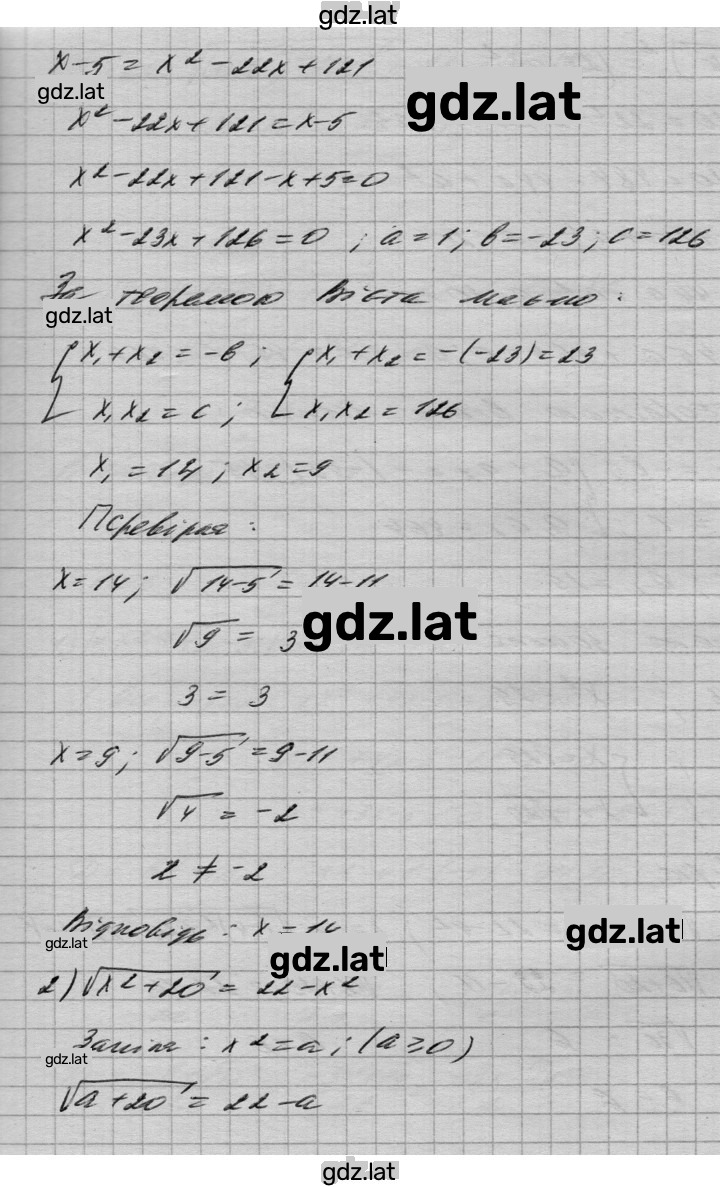 gdz.lat
x-5 = x² -22x+121
gdz.lat
gdz.lat
x² -22x+121 = x-5
x² -22x+121-x+5=0
x² -23x+126=0 ; a=1; b=-23; c=126
За теоремою Вієта маємо:
gdz.lat
{x₁+x₂ = -b ; {x₁+x₂ = -(-23) = 23
x₁x₂ = c ; x₁x₂ = 126
x₁ = 14 ; x₂ = 9
Перевірка:
x=14; √(14-5) = 14-11
gdz.lat
√9 = 3
3 = 3
x=9; √(9-5) = 9-11
√4 = -2
2 ≠ -2
Відповідь: x = 14
gdz.lat
gdz.lat
gdz.lat
2) √(x²+20) = 22-x²
Заміна: x² = a ; (a≥0)
gdz.lat
√(a+20) = 22-a
gdz.lat